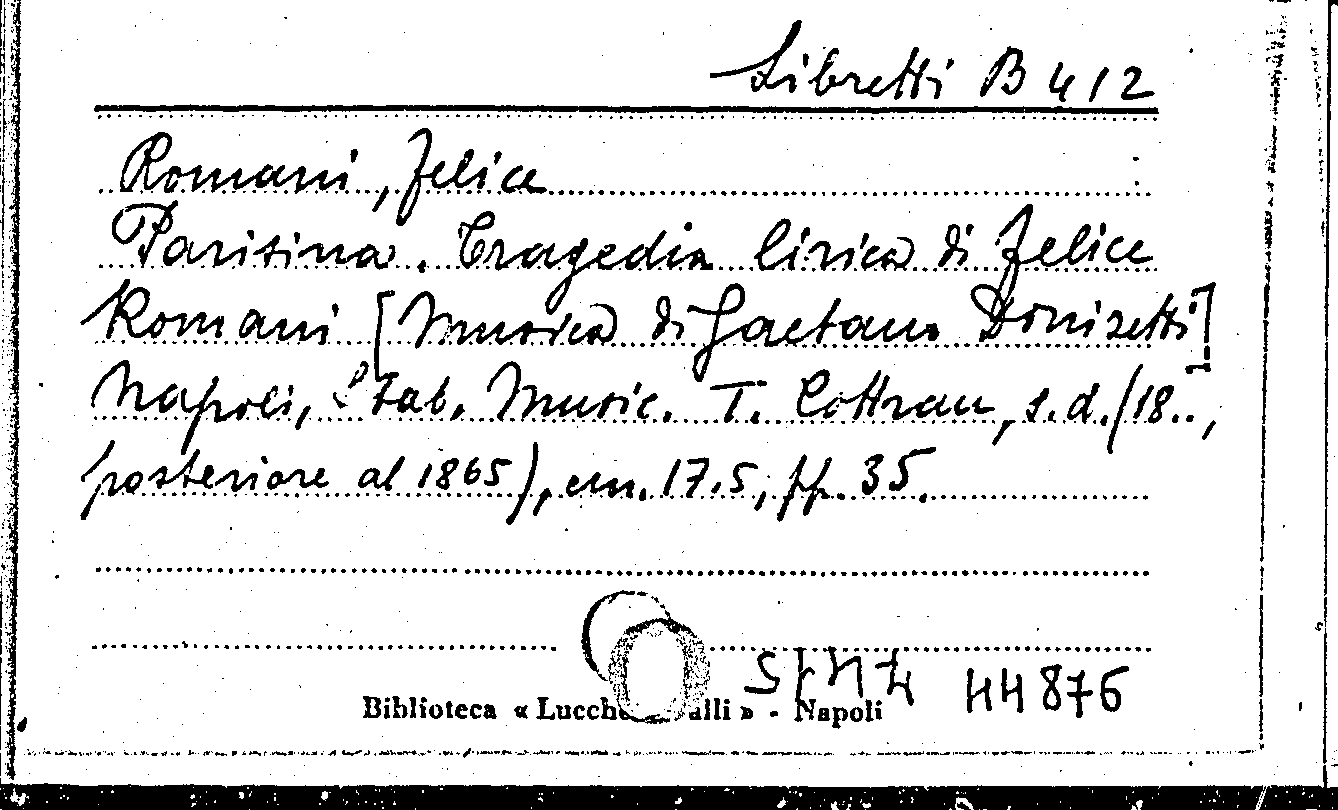 Libretti B 412
Romani, Felice
Parisina. Tragedia lirica di Felice
Romani [Musica di Gaetano Donizetti]
Napoli, Stab. Music. T. Cottrau, s.d. (18..,
posteriore al 1865), cm. 17.5, pp. 35.
44876
Biblioteca « » - Napoli